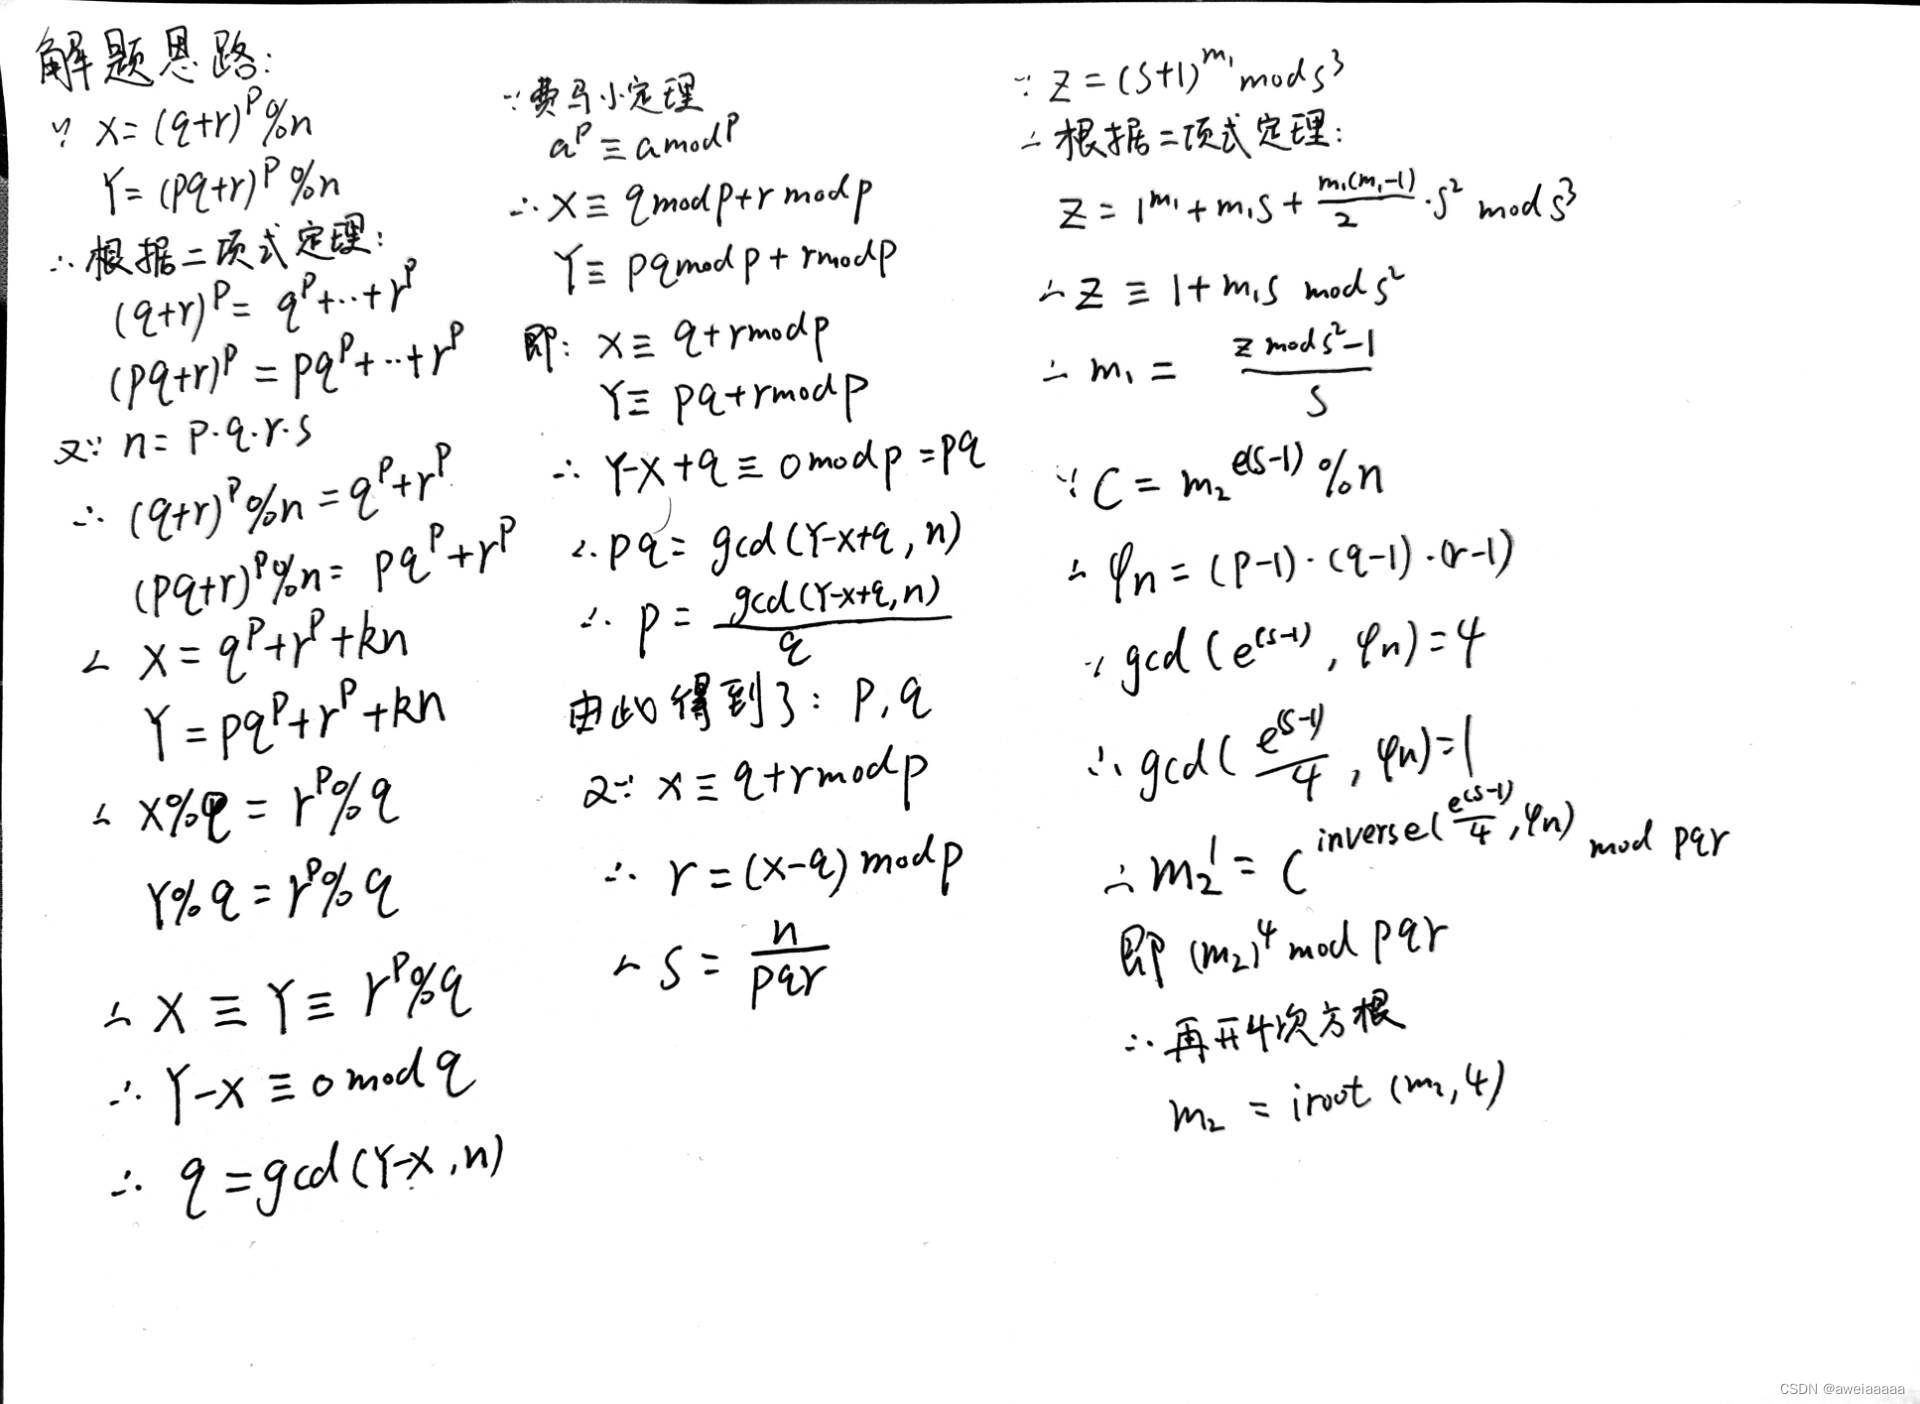 解题思路:
∵ X=(q+r)^p%n
Y=(pq+r)^p%n
∴根据二项式定理:
(q+r)^p= q^p+…+r^p
(pq+r)^p = pq^p+…+r^p
又∵ n= p·q·r·s
∴ (q+r)^p%n=q^p+r^p
(pq+r)^p%n= pq^p+r^p
∴ X=q^p+r^p+kn
Y=pq^p+r^p+kn
∴ X%q = r^p%q
Y%q=r^p%q
∴ X ≡ Y ≡ r^p%q
∴ Y-X ≡ 0 mod q
∴ q=gcd(Y-X,n)
∵费马小定理
a^p≡a mod p
∴X≡ q mod p+r mod p
Y≡ pq mod p+r mod p
即: X≡ q+r mod p
Y≡ pq+r mod p
∴ Y-X+q≡0 mod p=pq
∴ pq= gcd(Y-X+q,n)
∴ p= gcd(Y-X+q,n)/q
由此得到了: p,q
又∵ X≡ q+r mod p
∴ r=(X-q) mod p
∴ s= n/pqr
∵ Z=(s+1)^m₁ mod s³
∴根据二项式定理:
Z= 1^m₁+m₁s+ m₁(m₁-1)/2 ·s² mod s³
∴Z ≡ 1+m₁s mod s²
∴ m₁= (Z mod s²-1)/s
∵ C= m₂^e(s-1)%n
∴ φn=(p-1)·(q-1)·(r-1)
∵ gcd(e^(s-1), φn)=4
∴ gcd( e^(s-1)/4, φn)=1
∴ m₂'= C^inverse(e^(s-1)/4,φn) mod pqr
即 (m₂)⁴ mod pqr
∴ 再开4次方根
m₂ = iroot (m₂,4)
CSDN @aweiaaaaa